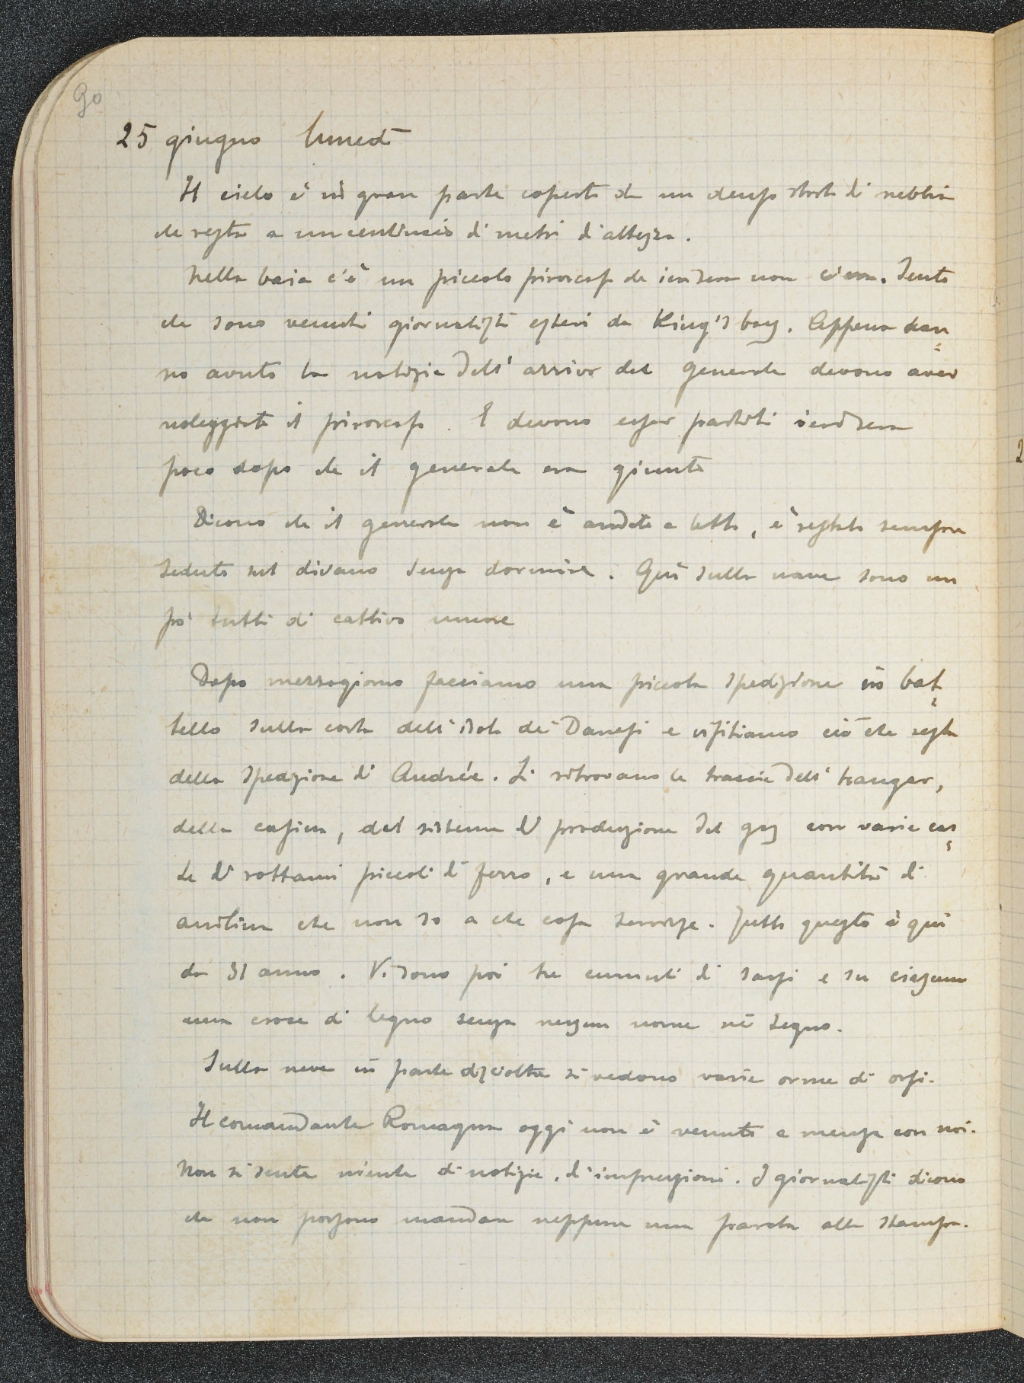 90
25 giugno lunedì
Il cielo è in gran parte coperto da un denso strato di nebbia
che resta a un centinaio di metri d'altezza.
Nella baia c'è un piccolo piroscafo che ieri sera non c'era. Sento
che sono venuti giornalisti esteri da King's bay. Appena han
no avuto la notizia dell'arrivo del generale devono aver
noleggiato il piroscafo. E devono esser partiti ieri sera
poco dopo che il generale era giunto
Dicono che il generale non è andato a letto, è restato sempre
seduto sul divano senza dormire. Qui sulla nave sono un
po' tutti di cattivo umore
Dopo mezzogiorno facciamo una piccola spedizione in bat
tello sulla costa dell'isola dei Danesi e visitiamo ciò che resta
della spedizione di Andrée. Si ritrovano le traccie dell'hangar,
della casina, del sistema di produzione del gaz con varie cas
se di rottami piccoli di ferro, e una grande quantità di
anilina che non so a che cosa servisse. Tutto questo è qui
da 31 anno. Vi sono poi tre cumuli di sassi e su ciascuno
una croce di legno senza nessun nome nè segno.
Sulla neve in parte disciolta si vedono varie orme di orsi.
Il comandante Romagna oggi non è venuto a mensa con noi.
Non si sente niente di notizie, d'impressioni. I giornalisti dicono
che non possono mandare neppure una parola alla stampa.